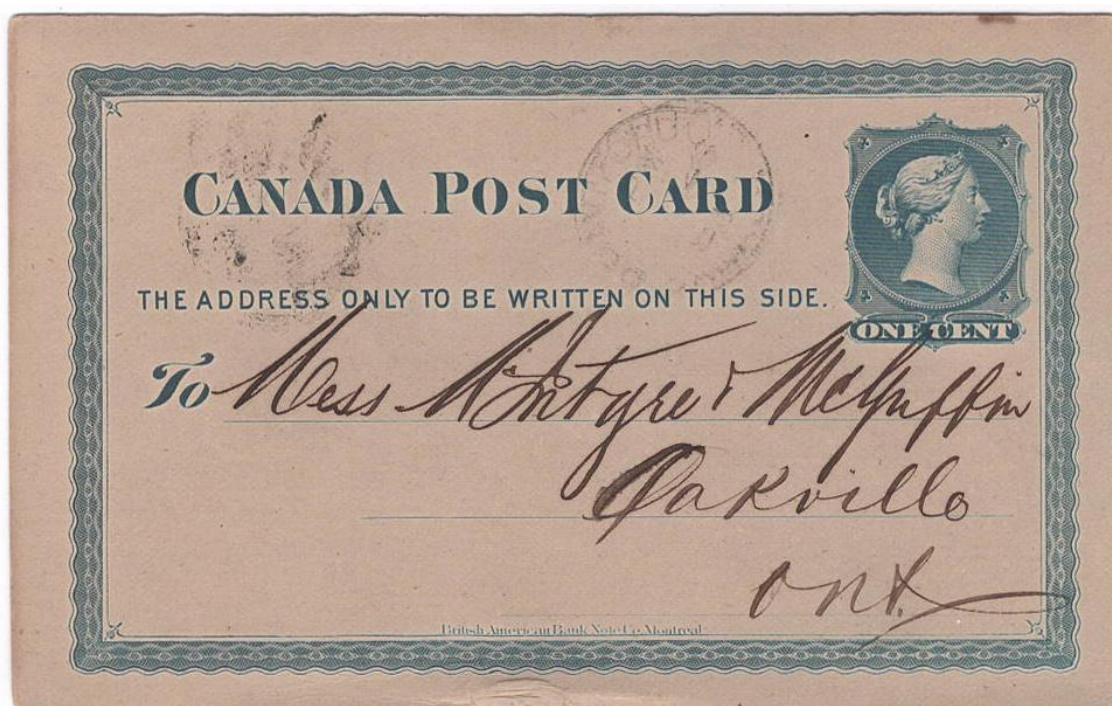 CANADA POST CARD
ONE CENT
THE ADDRESS ONLY TO BE WRITTEN ON THIS SIDE.
To Mess McIntyre & McGuffin
Oakville
Ont.
British American Bank Note Co. Montreal